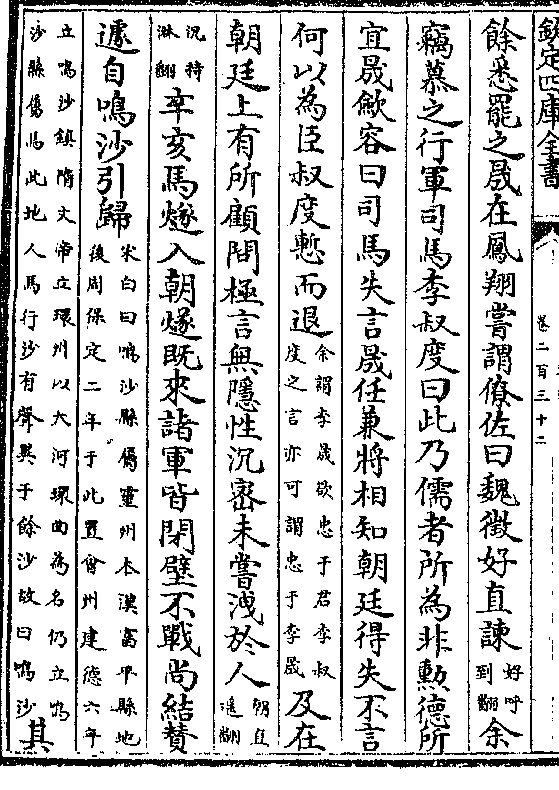 欽定四庫全書
卷二百三十二
餘悉罷之晟在鳳翔嘗謂僚佐曰魏徵好直諫好呼到翻余
竊慕之行軍司馬李叔度曰此乃儒者所為非勲德所
宜晟斂容曰司馬失言晟任兼將相知朝廷得失不言
何以為臣叔度慙而退余謂李晟欲忠于君李叔度之言亦可謂忠于李晟及在
朝廷上有所顧問極言無隱性沉密未嘗洩於人朝直遥翻
沉持淋翻辛亥馬燧入朝燧既來諸軍皆閉壁不戰尚結贊
遽自鳴沙引歸宋白曰鳴沙縣屬靈州本漢富平縣地後周保定二年于此置會州建德六年
立鳴沙鎮隋文帝立環州以大河環曲為名仍立鳴沙縣屬焉此地人馬行沙有聲異于餘沙故曰鳴沙其